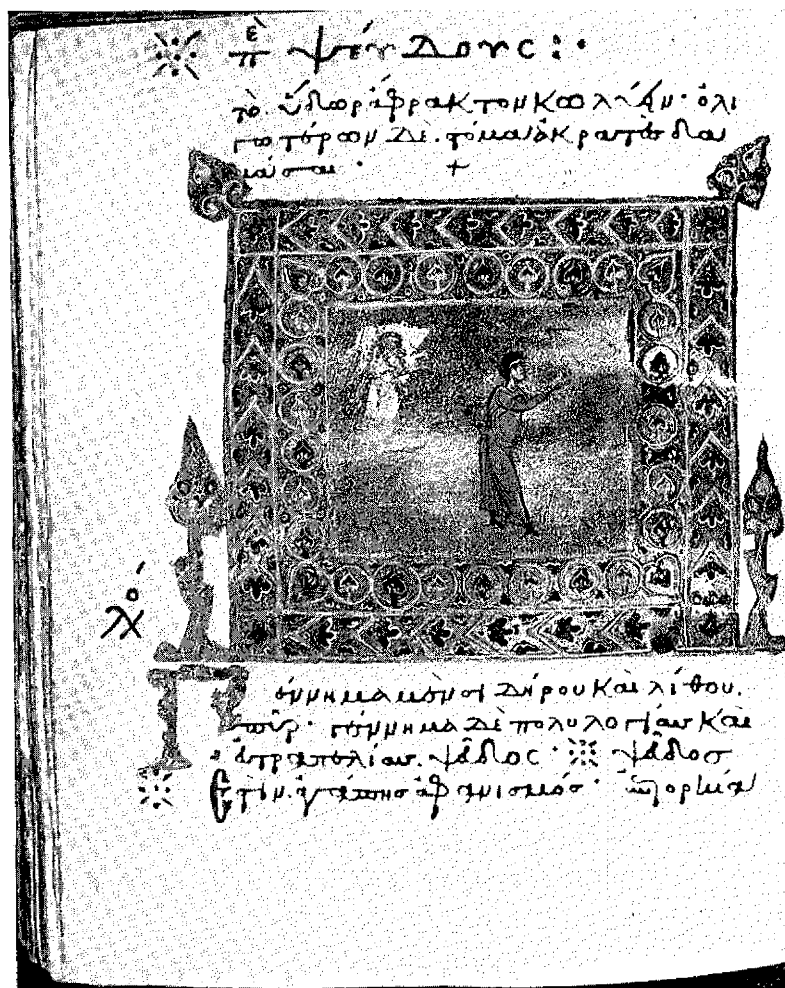 πε ψεύδους :·
τὸ ὕδωρ ἄφρακτον κωλύειν· ὀλι
γωτέρων δὲ. στόμα ἀκρατὲς δα
μάσαι · +
Γέννημα μὲν σιδήρου καὶ λίθου.
πῦρ· γέννημα δὲ πολυλογίας καὶ
εὐτραπελίας. ψεῦδος · ψεῦδος
ἐστιν. ἀγάπης ἀφανισμός· ἐπιορκία